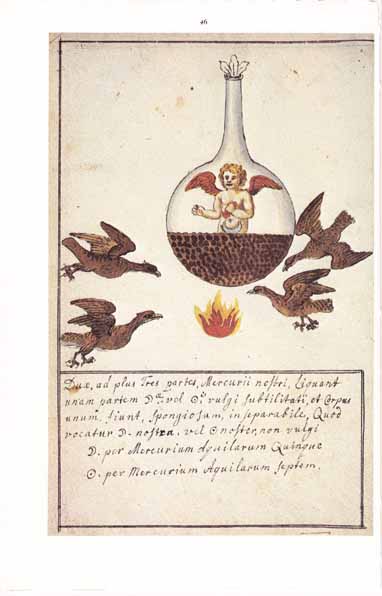 46
Duæ, ad plus Tres partes, Mercurii nostri, liquant
unam partem ☽æ: vel ☉is vulgi subtilitati, et Corpus
unum, fiunt, Spongiosam, inseparabile, Quod
vocatur ☽. nostra, vel ☉ noster, non vulgi
☽. per Mercurium Aquilarum Quinque
☉. per Mercurium Aquilarum septem.